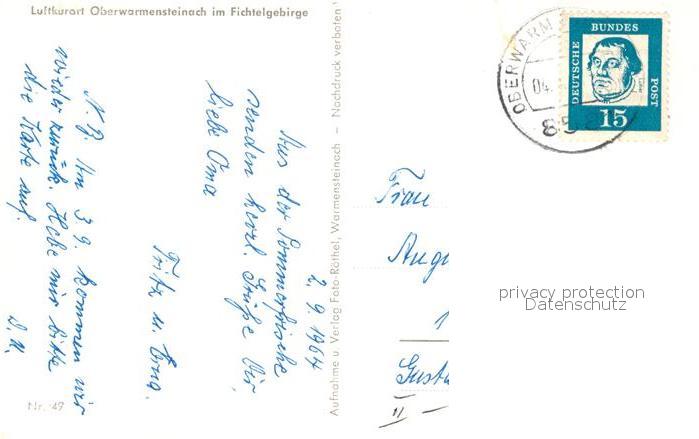 Luftkurort Oberwarmensteinach im Fichtelgebirge
2.9.1964
Aus der Sommerfrische
senden herzl. Grüße Dir,
liebe Oma
Fritz u. Erna.
N. B. Am 3.9. kommen wir
wieder zurück. Hebe mir bitte
die Karte auf.
D. U.
Nr. 49
Aufnahme u Verlag Foto-Röthel, Warmensteinach — Nachdruck verboten
OBERWARM
04.
858
DEUTSCHE
BUNDES
POST
15
Frau
Augu
1
Gusta
11
privacy protection
Datenschutz